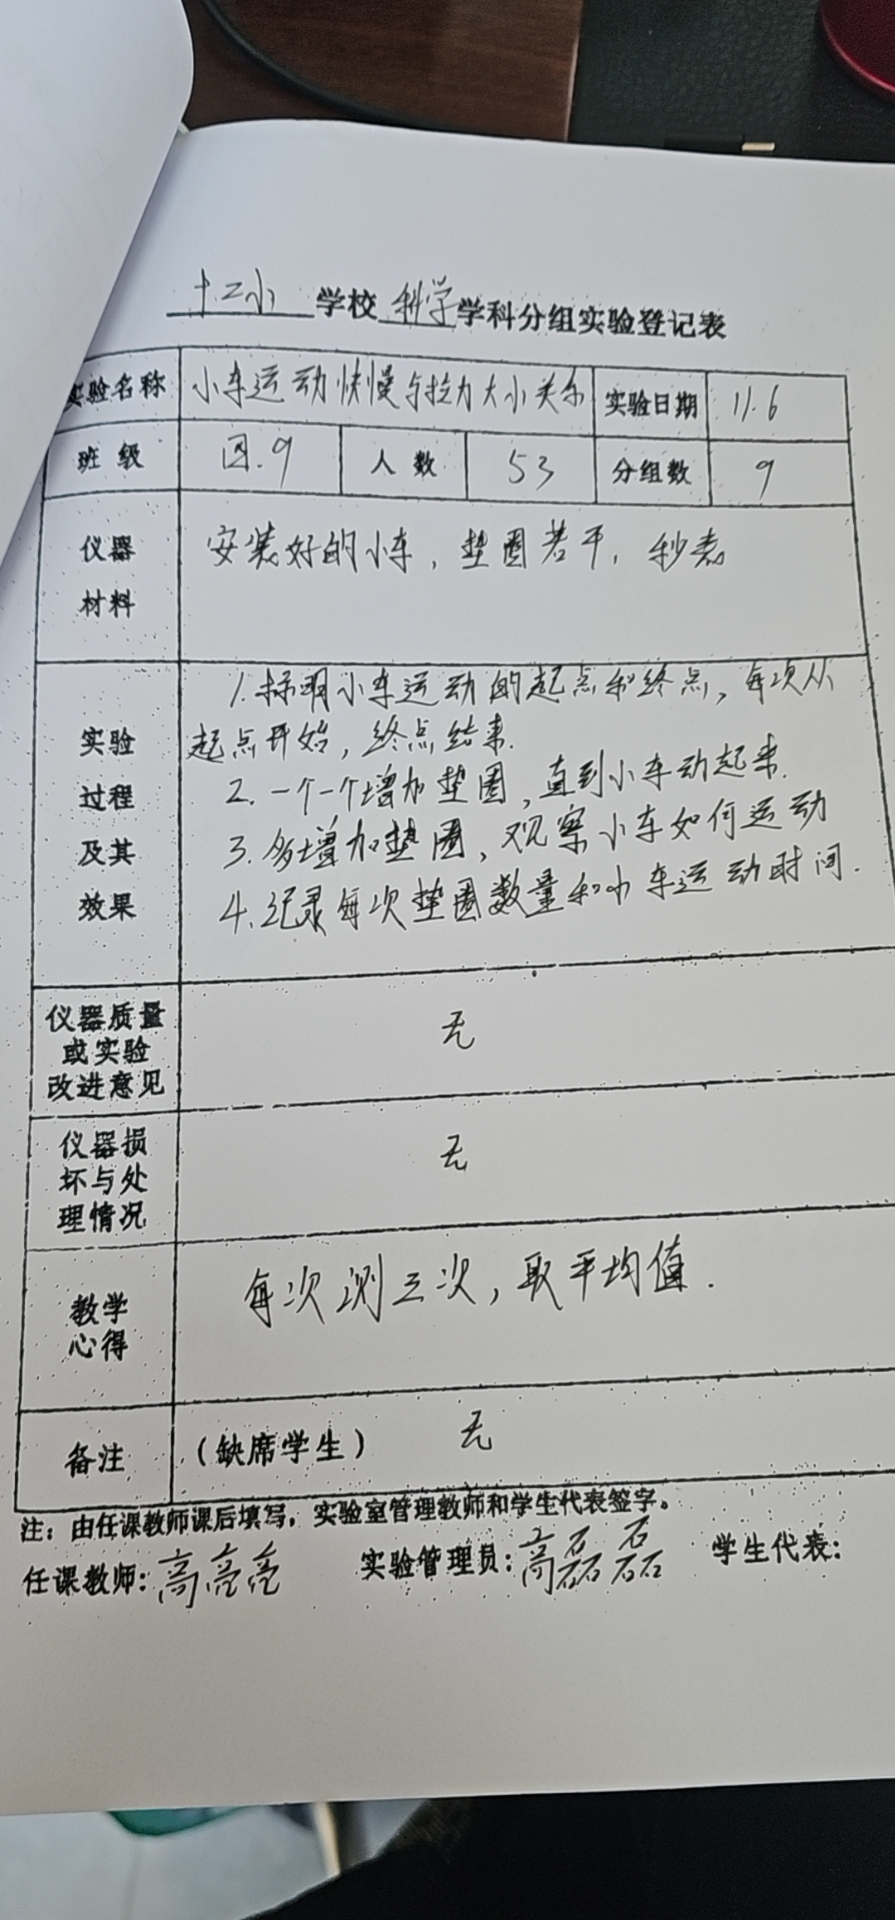 十二小学校科学学科分组实验登记表
实验名称 小车运动快慢与拉力大小关系 实验日期 11.6
班级 四.9 人数 53 分组数 9
仪器材料 安装好的小车，垫圈若干，秒表
实验过程及其效果
1.标明小车运动的起点和终点，每次从
起点开始，终点结束.
2.一个一个增加垫圈，直到小车动起来.
3.多增加垫圈，观察小车如何运动
4.记录每次垫圈数量和小车运动时间.
仪器质量或实验改进意见 无
仪器损坏与处理情况 无
教学心得 每次测三次，取平均值.
备注 （缺席学生） 无
注：由任课教师课后填写，实验室管理教师和学生代表签字。
任课教师：高亮亮 实验管理员：高磊磊 学生代表：